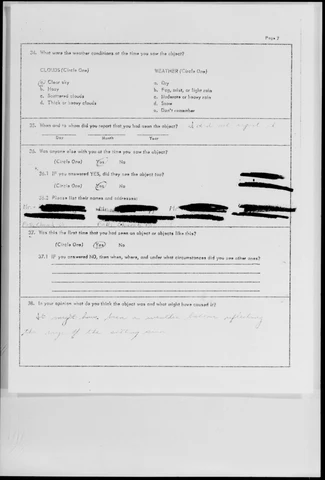 Page 7
34. What were the weather conditions at the time you saw the object?
CLOUDS (Circle One) WEATHER (Circle One)
a. Clear sky a. Dry
b. Hazy b. Fog, mist, or light rain
c. Scattered clouds c. Moderate or heavy rain
d. Thick or heavy clouds d. Snow
e. Don't remember
35. When and to whom did you report that you had seen the object? I did not report it
Day Month Year
36. Was anyone else with you at the time you saw the object?
(Circle One) Yes No
36.1 IF you answered YES, did they see the object too?
(Circle One) Yes No
36.2 Please list their names and addresses:
37. Was this the first time that you had seen an object or objects like this?
(Circle One) Yes No
37.1 IF you answered NO, then when, where, and under what circumstances did you see other ones?
38. In your opinion what do you think the object was and what might have caused it?
It might have been a weather balloon reflecting
the rays of the setting sun